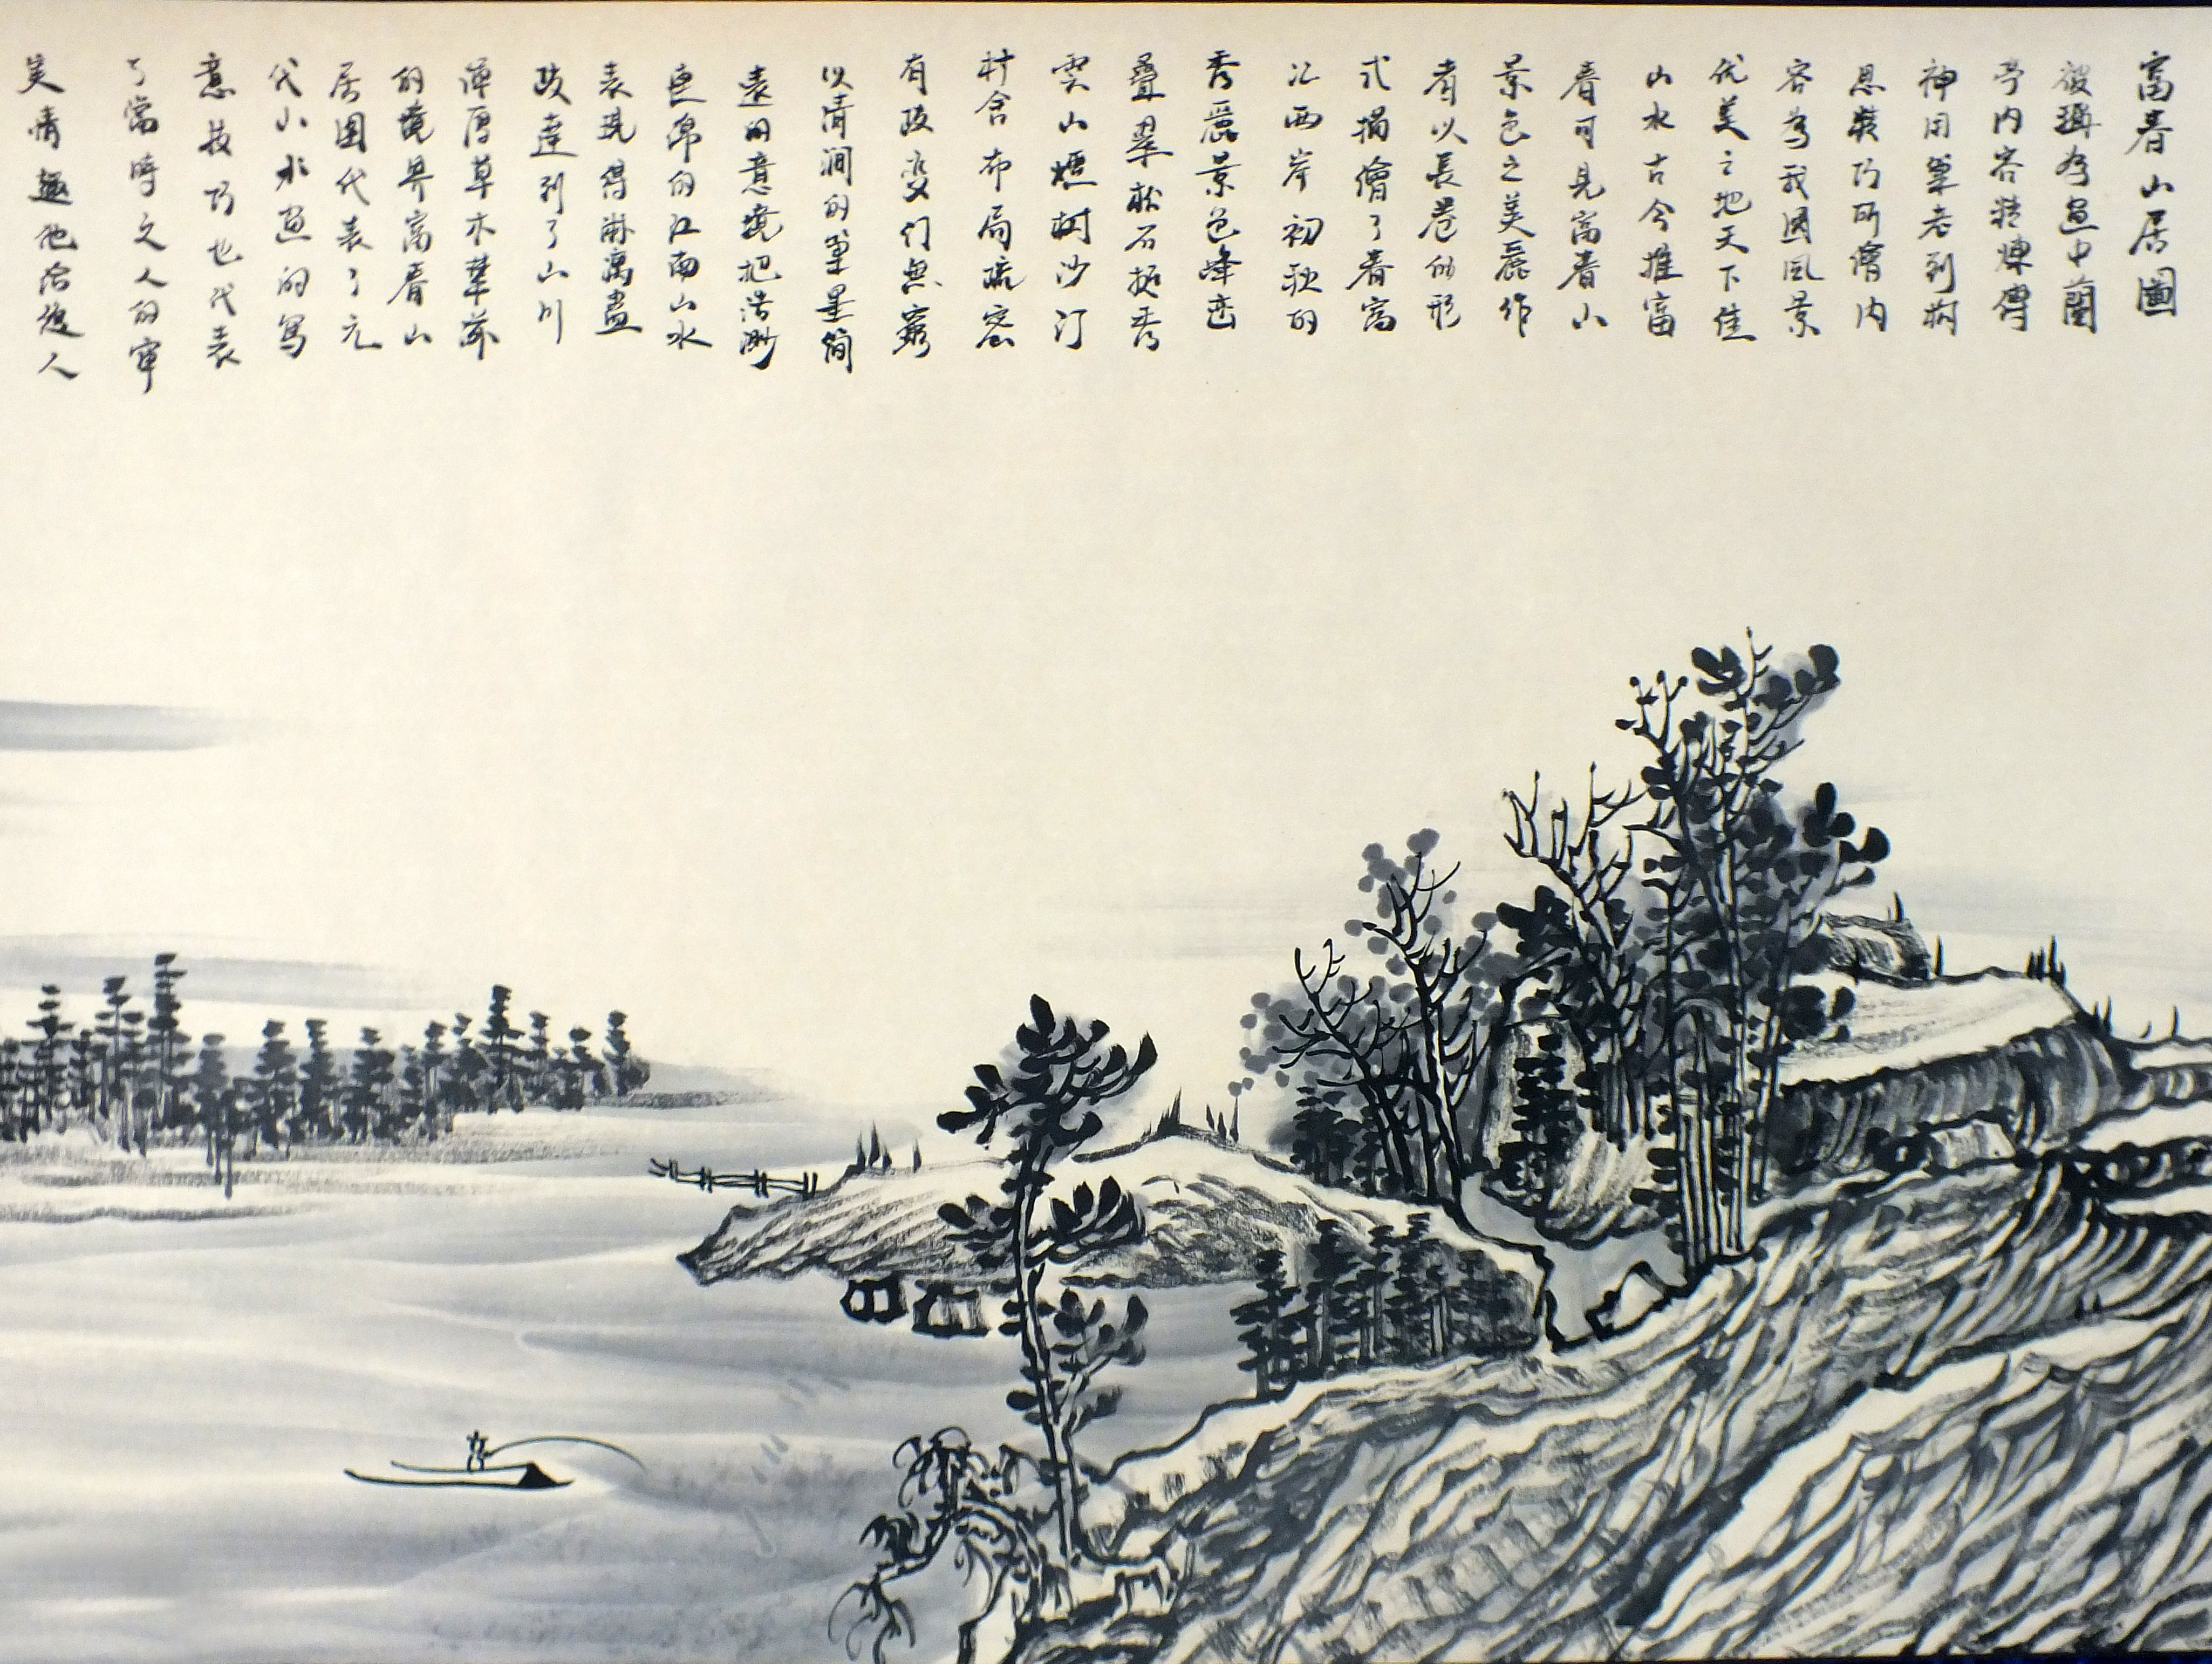 富春山居圖
被稱為畫中蘭
亭内容精煉傳
神用筆老到构
思裝巧所繪内
容為我國風景
优美之地天下佳
山水古今推富
春可見富春山
景色之美麗作
者以長卷的形
式描繪了春富
江两岸初秋的
秀麗景色峰峦
叠翠松石挺秀
雲山煙樹沙汀
村舍布局疏密
有致变幻無窮
以清润的筆墨简
遠的意境把浩渺
連綿的江南山水
表現得淋漓盡
致達到了山川
渾厚草木華滋
的境界富春山
居图代表了元
代山水画的寫
意技巧也代表
了當時文人的審
美情趣他给後人